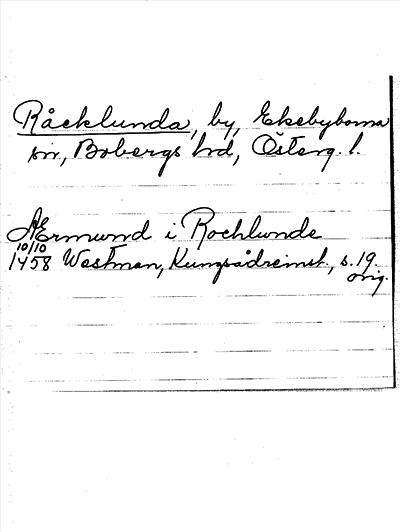 Råcklunda, by, Ekebyborna
sn, Bobergs hd, Österg. l.
Ærmund i Rochlunde
10/10
1458 Westman, Kungsådreinst., s. 19.
orig.